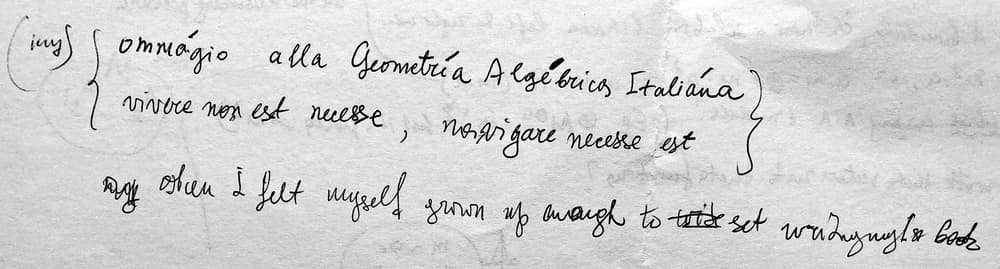 ommágio alla Geometría Algébrica Italiána
vivere non est necesse, navigare necesse est
when I felt myself grown up enough to set writing my book